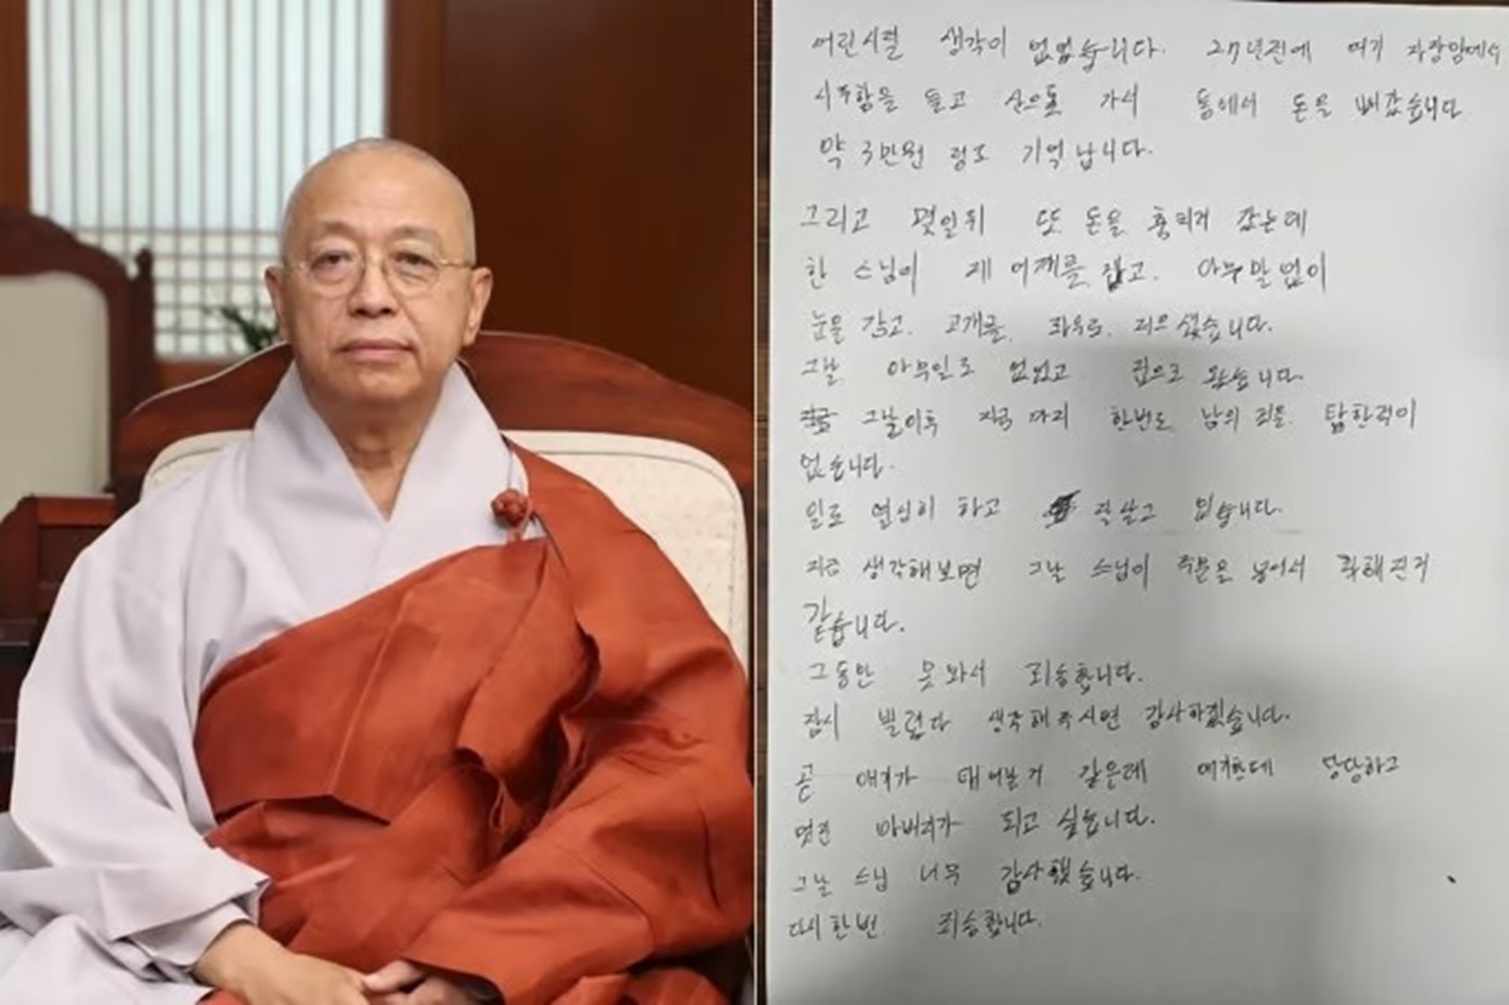 어린시절 생각이 없었습니다. 27년전에 여기 자장암에서
시주함을 들고 산으로 가서 통에서 돈을 빼갔습니다
약 3만원 정도 기억 납니다.
그리고 몇일뒤 또 돈을 훔치러 갔는데
한 스님이 제 어깨를 잡고. 아무말없이
눈을 감고. 고개를. 좌우로. 저으셨습니다.
그날 아무일도 없었고 집으로 왔습니다.
그날이후 지금 까지 한번도 남의 것을. 탐한적이
없습니다.
일도 열심히 하고 잘살고 있습니다.
지금 생각해보면 그날 스님이 주문을 넣어서 착해진거
같습니다.
그동안 못와서 죄송합니다.
잠시 빌렸다 생각해주시면 감사하겠습니다.
곧 애기가 태어날거 같은데 애기한테 당당하고
멋진 아버지가 되고 싶습니다.
그날 스님 너무 감사했습니다.
다시한번 죄송합니다.